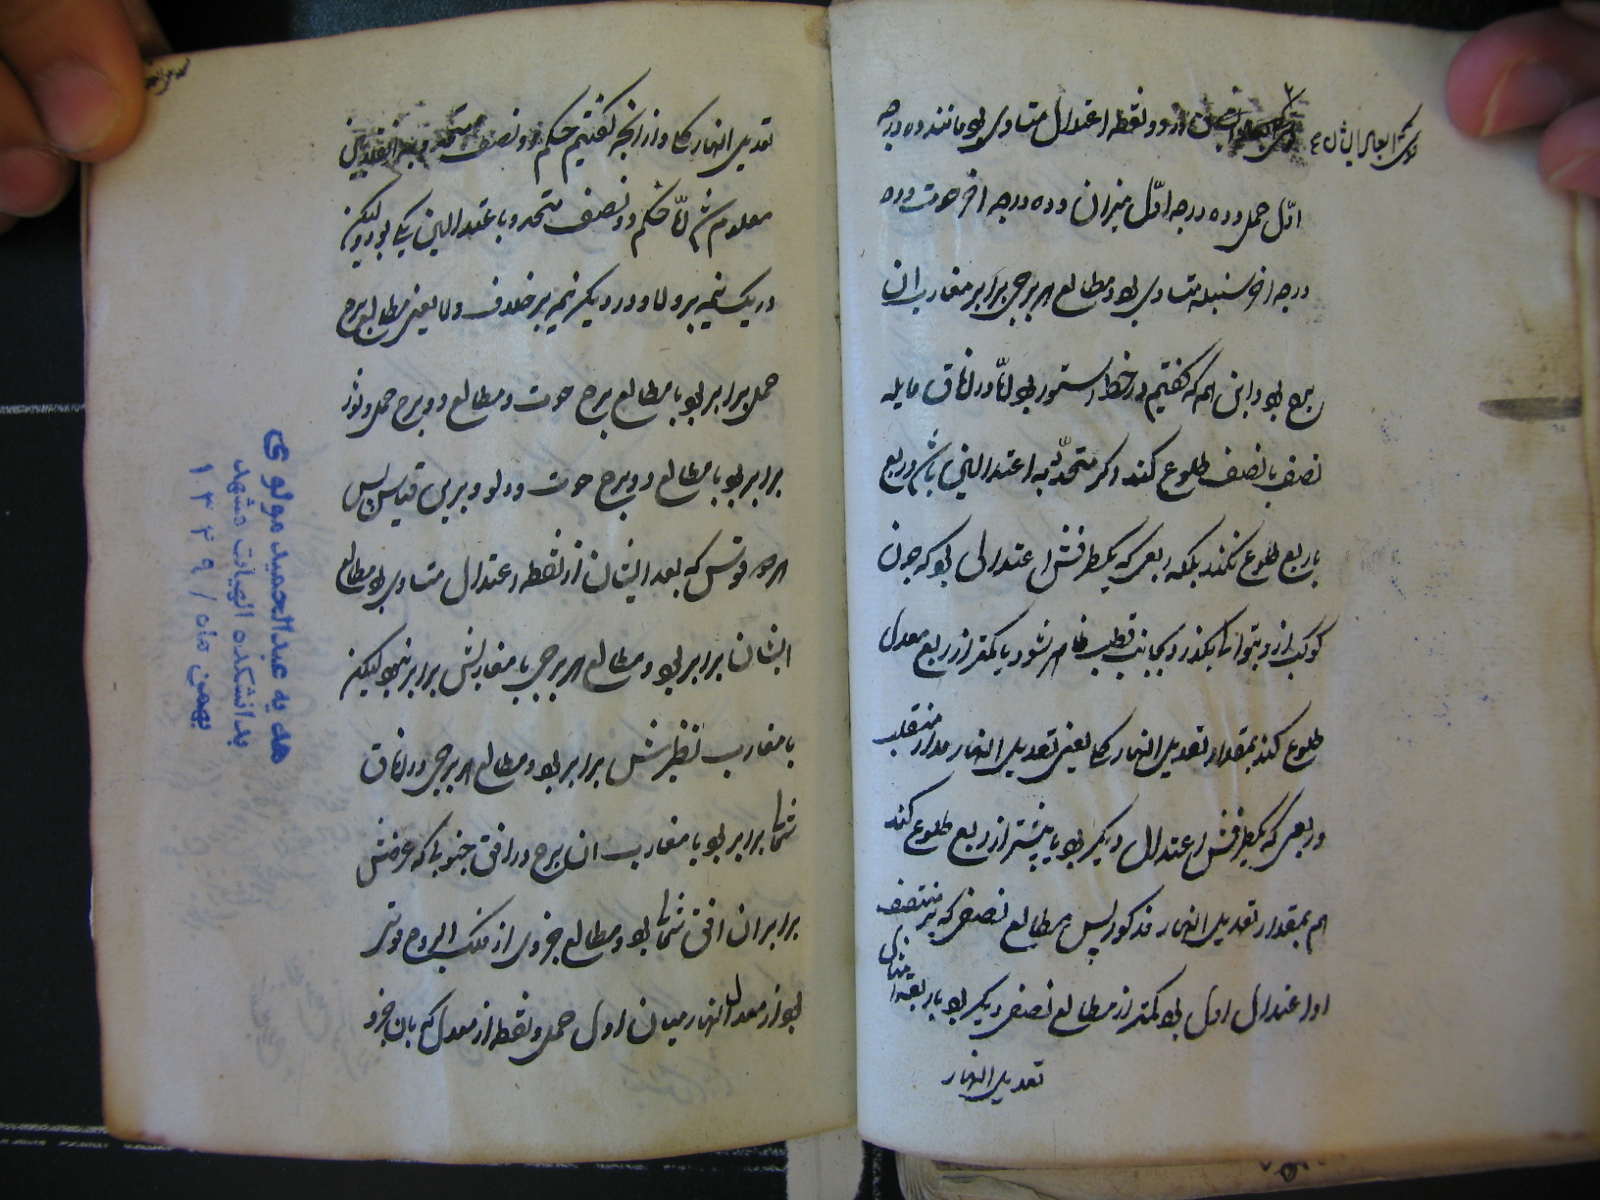 از دو نقطه اعتدال متساوی بود مانند ده درجه
اوّل حمل و ده درجه اوّل میزان و ده درجه آخر حوت و ده
درجه آخر سنبله متساوی بود و مطالع هر برجی برابر مغارب آن
برج بود و این هم که گفتیم در خط استوا بود امّا در آفاق مایله
نصف با نصف طلوع کند اگر متحدّد به اعتدالین باشد و ربع
با ربع طلوع نکند بلکه ربعی که یکطرفش اعتدالی بود که چون
کوکب ازو بتوالی بگذرد بجانب قطب ظاهر شود با کمتر از ربع معدل
طلوع کند بمقدار تعدیل النهار کلی یعنی تعدیل النهار مدار منقلب
و ربعی که یکطرفش اعتدال دیگر بود با بیشتر از ربع طلوع کند
هم بمقدار تعدیل النهار مذکور پس مطالع نصفی که بر منتصف
او اعتدال اول بود کمتر از مطالع نصفی دیگر بود بار بعة امثال
تعدیل النهار
تعدیل النهار کلی و از آنچه گفتیم حکم دو نصف
معلوم شد امّا حکم دو نصف متحدد باعتدالین یکی بود ولیکن
در یک نیمه بر ولا و در دیگر نیمه بر خلاف ولا یعنی مطالع برج
حمل برابر بود با مطالع برج حوت و مطالع دو برج حمل و ثور
برابر بود با مطالع دو برج حوت و دلو و برین قیاس پس
هر دو قوس که بعد ایشان از نقطه اعتدال متساوی بود مطالع
ایشان برابر بود و مطالع هر برجی با مغاربش برابر نبود لیکن
با مغارب نظیرش برابر بود و مطالع هر برجی در آفاق
شمالی برابر بود با مغارب آن برج در افق جنوبی که عرضش
برابر آن افق شمالی بود و مطالع جزوی از فلک البروج قوسی
بود از معدل النهار میان اول حمل و نقطه از معدل که بآن جزو
هدیه عبدالحمید مولوی
بدانشکده الهیات مشهد
بهمن ماه / ۱۳۴۹